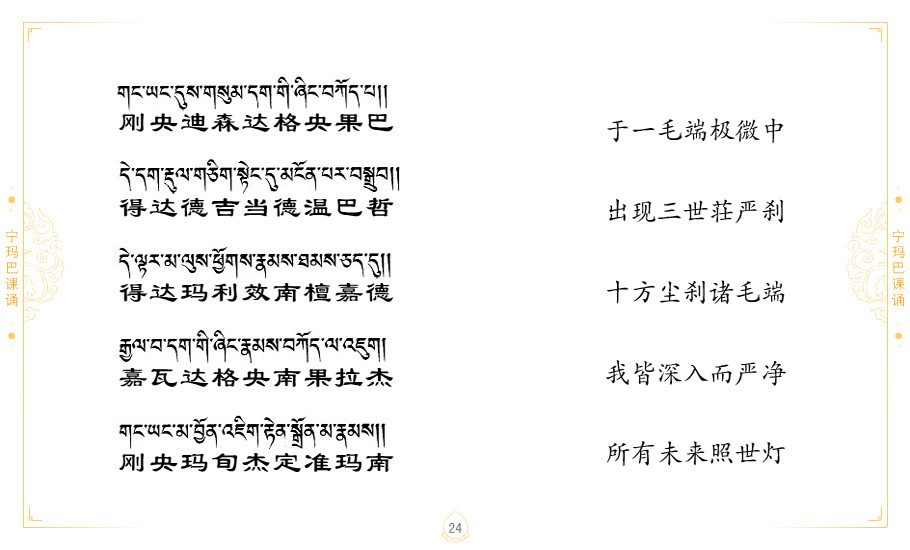 གང་ཡང་དུས་གསུམ་དག་གི་ཞིང་བཀོད་པ།།
刚央迪森达格央果巴
དེ་དག་རྡུལ་གཅིག་སྟེང་དུ་མངོན་པར་བསྒྲུབ།།
得达德吉当德温巴哲
དེ་ལྟར་མ་ལུས་ཕྱོགས་རྣམས་ཐམས་ཅད་དུ།།
得达玛利效南檀嘉德
རྒྱལ་བ་དག་གི་ཞིང་རྣམས་བཀོད་ལ་འཇུག།
嘉瓦达格央南果拉杰
གང་ཡང་མ་བྱོན་འཇིག་རྟེན་སྒྲོན་མ་རྣམས།།
刚央玛旬杰定准玛南
于一毛端极微中
出现三世荘严刹
十方尘刹诸毛端
我皆深入而严净
所有未来照世灯
宁玛巴课诵
宁玛巴课诵
24